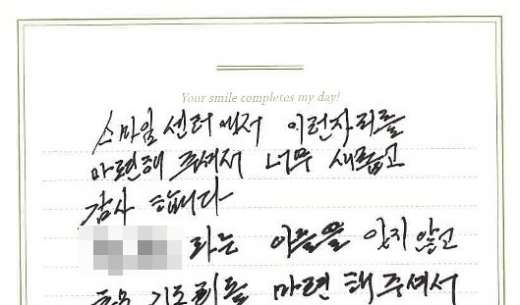 Your smile completes my day!
스마일 센터에서 이런자리를
마련해 주셔서 너무 새롭고
감사 합니다
라는 이름을 잊지 않고
마련 해 주셔서